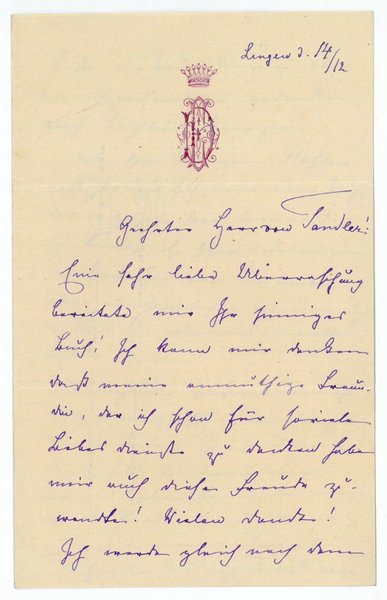 Lingen d. 14/12
Geehrter Herr von Sandler!
Eine sehr liebe Überraschung
bereitete mir Ihr sinniges
Buch! Ich kann mir denken
daß meine anmuthige Freun-
din, der ich schon für so viele
Liebesdienste zu danken habe
mir auch diese Freude zu-
wandte! Vielen Dank!
Ich werde gleich nach dem